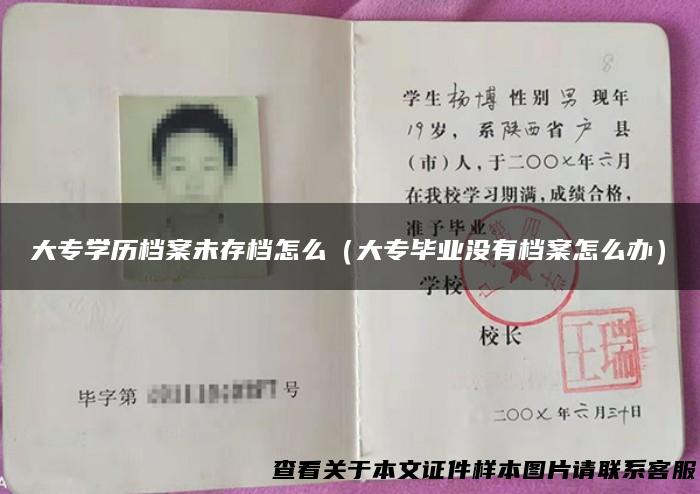 8
学生杨博性别男现年
19岁，系陕西省户县
(市)人，于二〇〇七年六月
在我校学习期满，成绩合格，
准予毕业
大专学历档案未存档怎么（大专毕业没有档案怎么办）
学校
校长
毕字第 号
二〇〇七年六月三十日
查看关于本文证件样本图片请联系客服